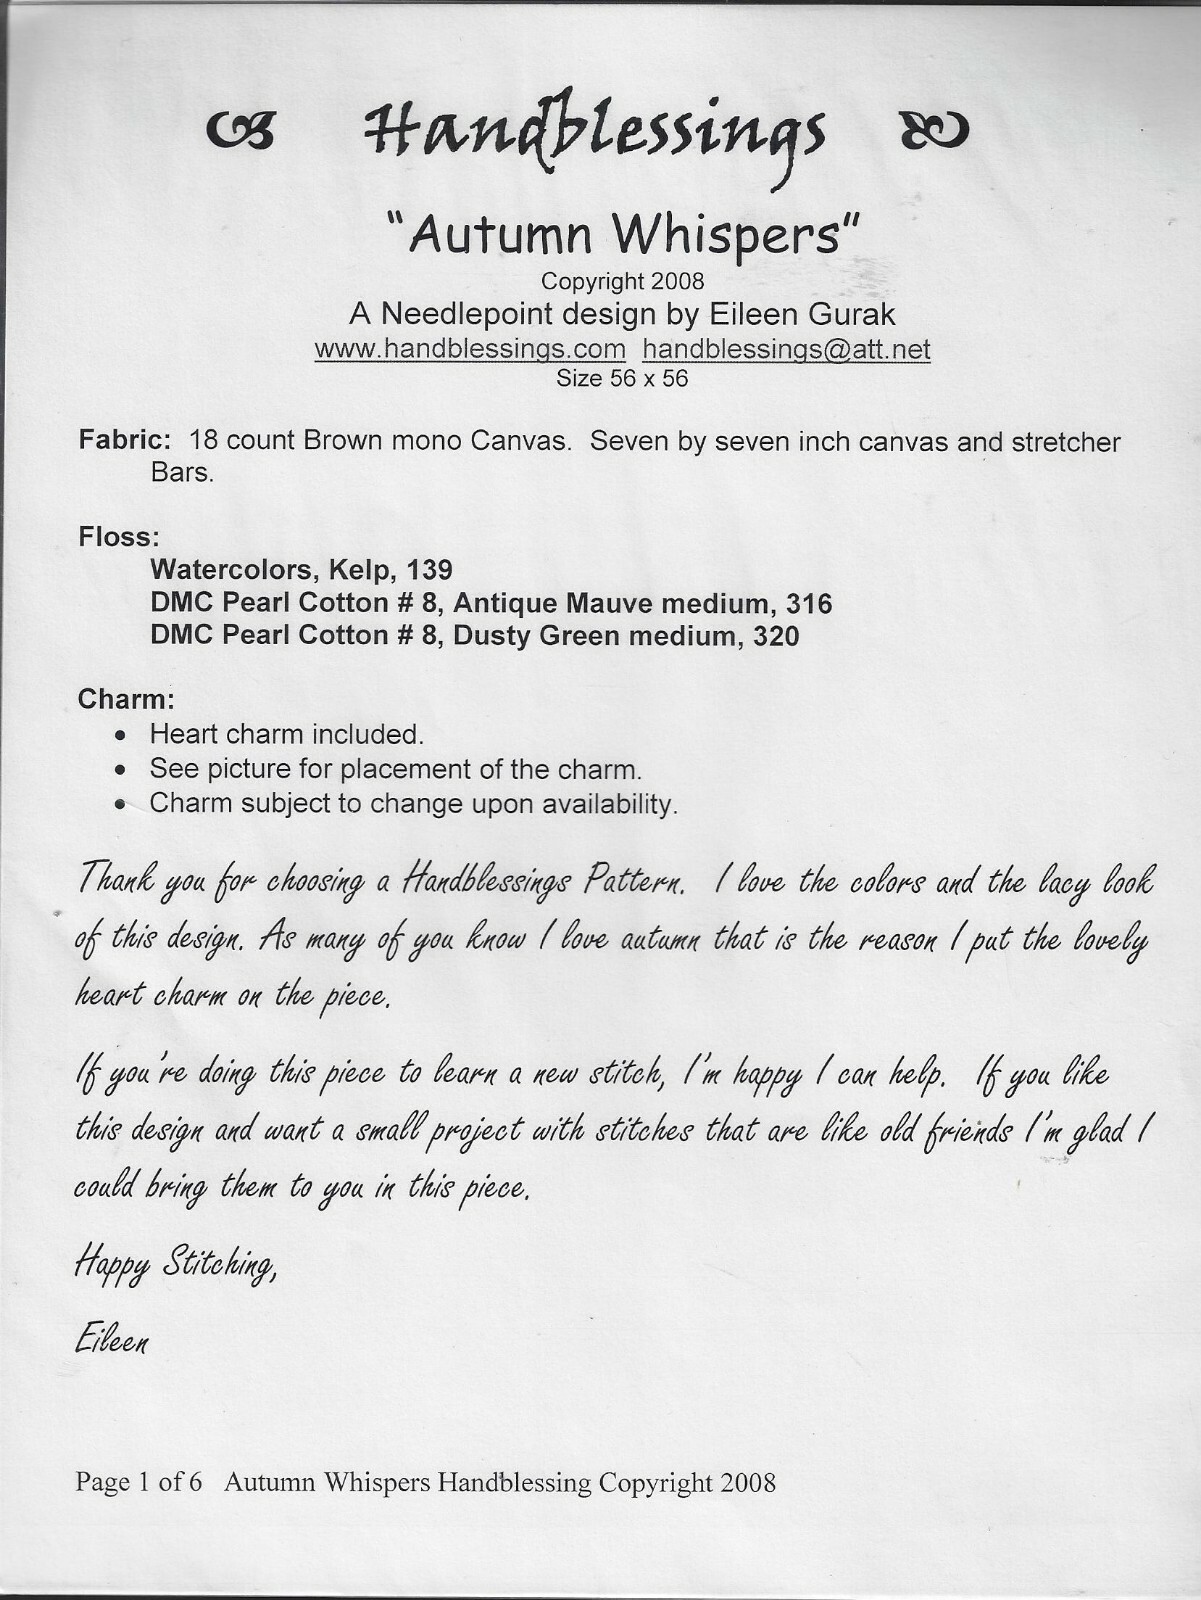 Handblessings
"Autumn Whispers"
Copyright 2008
A Needlepoint design by Eileen Gurak
www.handblessings.com handblessings@att.net
Size 56 x 56
Fabric: 18 count Brown mono Canvas. Seven by seven inch canvas and stretcher
Bars.
Floss:
Watercolors, Kelp, 139
DMC Pearl Cotton # 8, Antique Mauve medium, 316
DMC Pearl Cotton # 8, Dusty Green medium, 320
Charm:
• Heart charm included.
• See picture for placement of the charm.
• Charm subject to change upon availability.
Thank you for choosing a Handblessings Pattern. I love the colors and the lacy look
of this design. As many of you know I love autumn that is the reason I put the lovely
heart charm on the piece.
If you're doing this piece to learn a new stitch, I'm happy I can help. If you like
this design and want a small project with stitches that are like old friends I'm glad I
could bring them to you in this piece.
Happy Stitching,
Eileen
Page 1 of 6 Autumn Whispers Handblessing Copyright 2008